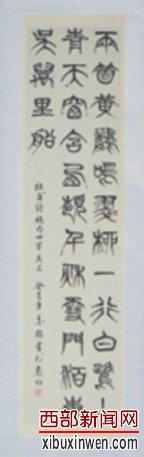 兩個黃鸝鳴翠柳一行白鷺上
青天窗含西嶺千秋雪門泊東
吳萬里船
杜甫詩絕句四首其三
西部新闻网
xibuxinwen.com